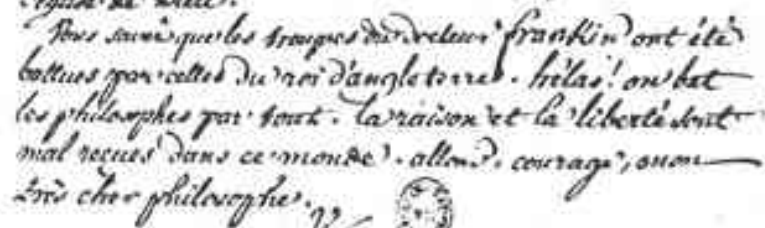 l'église de
Vous savez que les troupes du docteur franklin ont été
battues par celles du roi d'angleterre. hélas! on bat
les philosophes par tout. la raison et la liberté sont
mal reçues dans ce monde. allons. courage, mon
très cher philosophe.